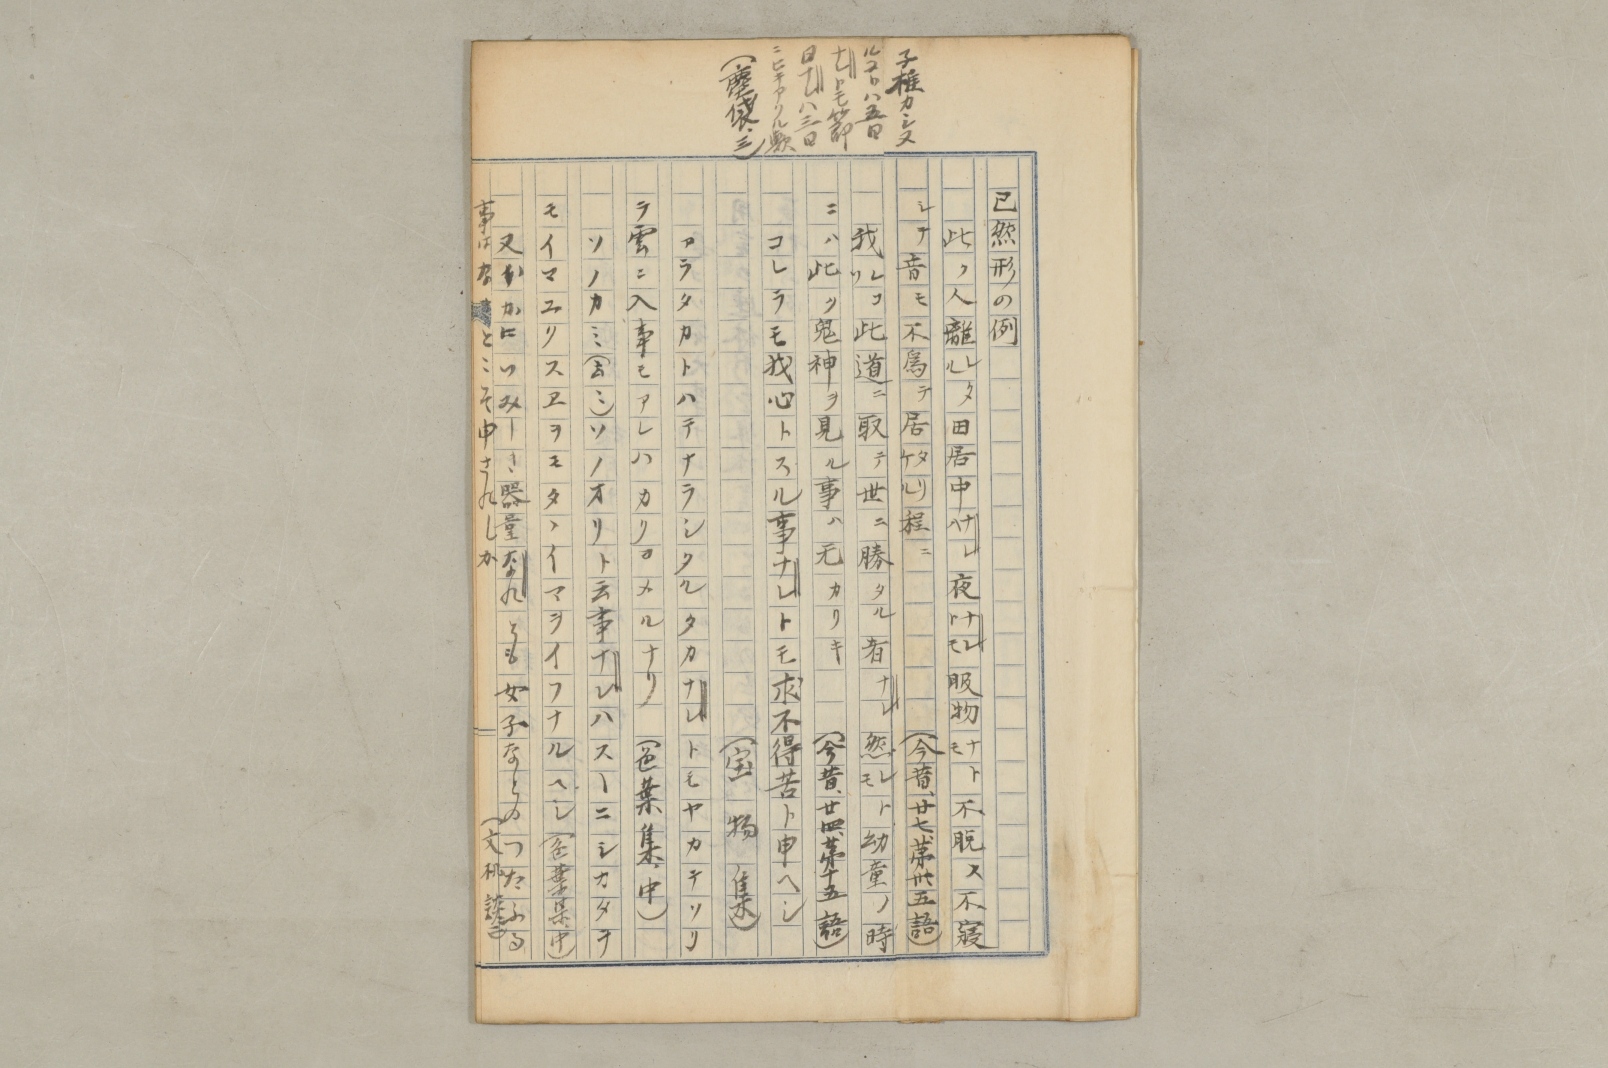 子椎カシヌ
ルコトハ五日
ナレトモ節
日ナレハ三日
ニヒキアクル歟
(塵袋、三)
已然形の例
此ノ人離レルタ田居中ナレハ夜ナレトモ服物ナトモ不脱ス不寝
シテ音モ不為テ居タリケル程ニ(今昔、廿七、第卅五語)
我レソコ此道ニ取テ世ニ勝タル者ナレ然レトモ幼童ノ時
ニハ此ク鬼神ヲ見ル事ハ无カリキ(今昔、廿四、第十五語)
コレラモ我心トスル事ナレトモ求不得苦ト申ヘシ
(宝物集)
アラタカトハテナラシタルタカナレトモヤカテソリ
ラ雲ニ入事モアレハカリコメルナリ(色葉集、中)
ソノカミ(云ミ)ソノオリト云事ナレハスーニシカタテ
モイマユリスヱヲモタヽイマヲイフナルヘシ(色葉集、中)
又おかにつみーき器量なれとも女子なとのつたふる
事はなとこそ申されしか(文机談)